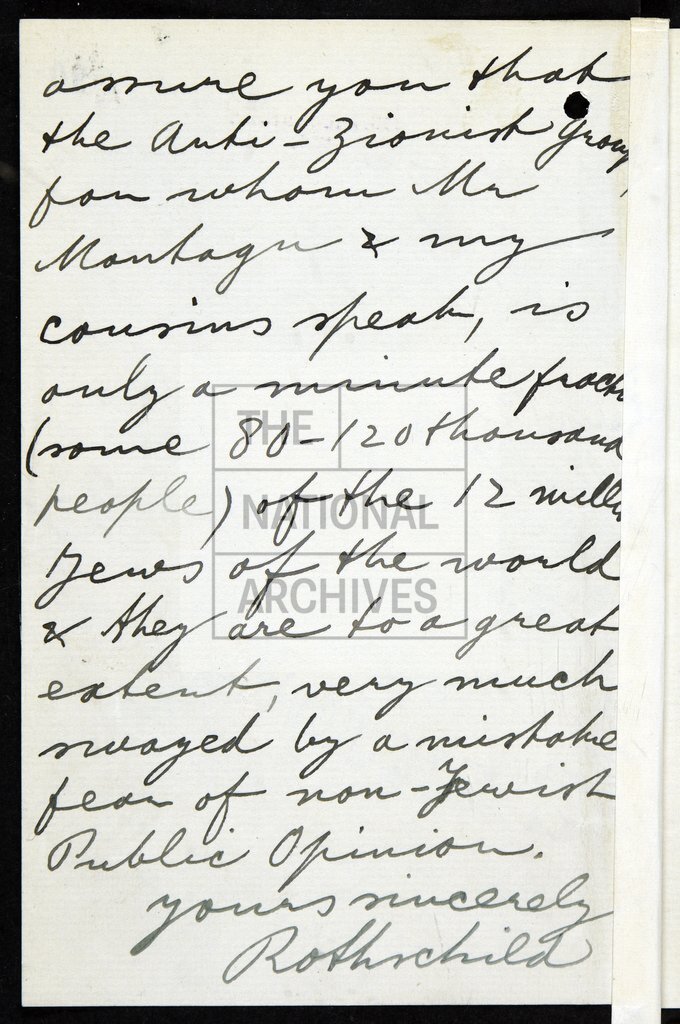 assure you that
the Anti-Zionist Group,
for whom Mr
Montagu & my
cousins speak, is
only a minute fracti
(some 80-120 thousand
people) of the 12 milli
Jews of the world
& they are to a great
extent, very much
swayed by a mistake
fear of non-Jewish
Public Opinion.
yours sincerely
Rothschild
THE
NATIONAL
ARCHIVES